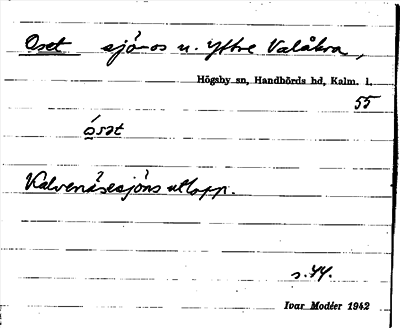 Oset sjö-os n. Yttre Valåkra,
Högsby sn, Handbörds hd, Kalm. l.
55
ósət
Kalvenäsesjöns utlopp.
s. 44.
Ivar Modéer 1942